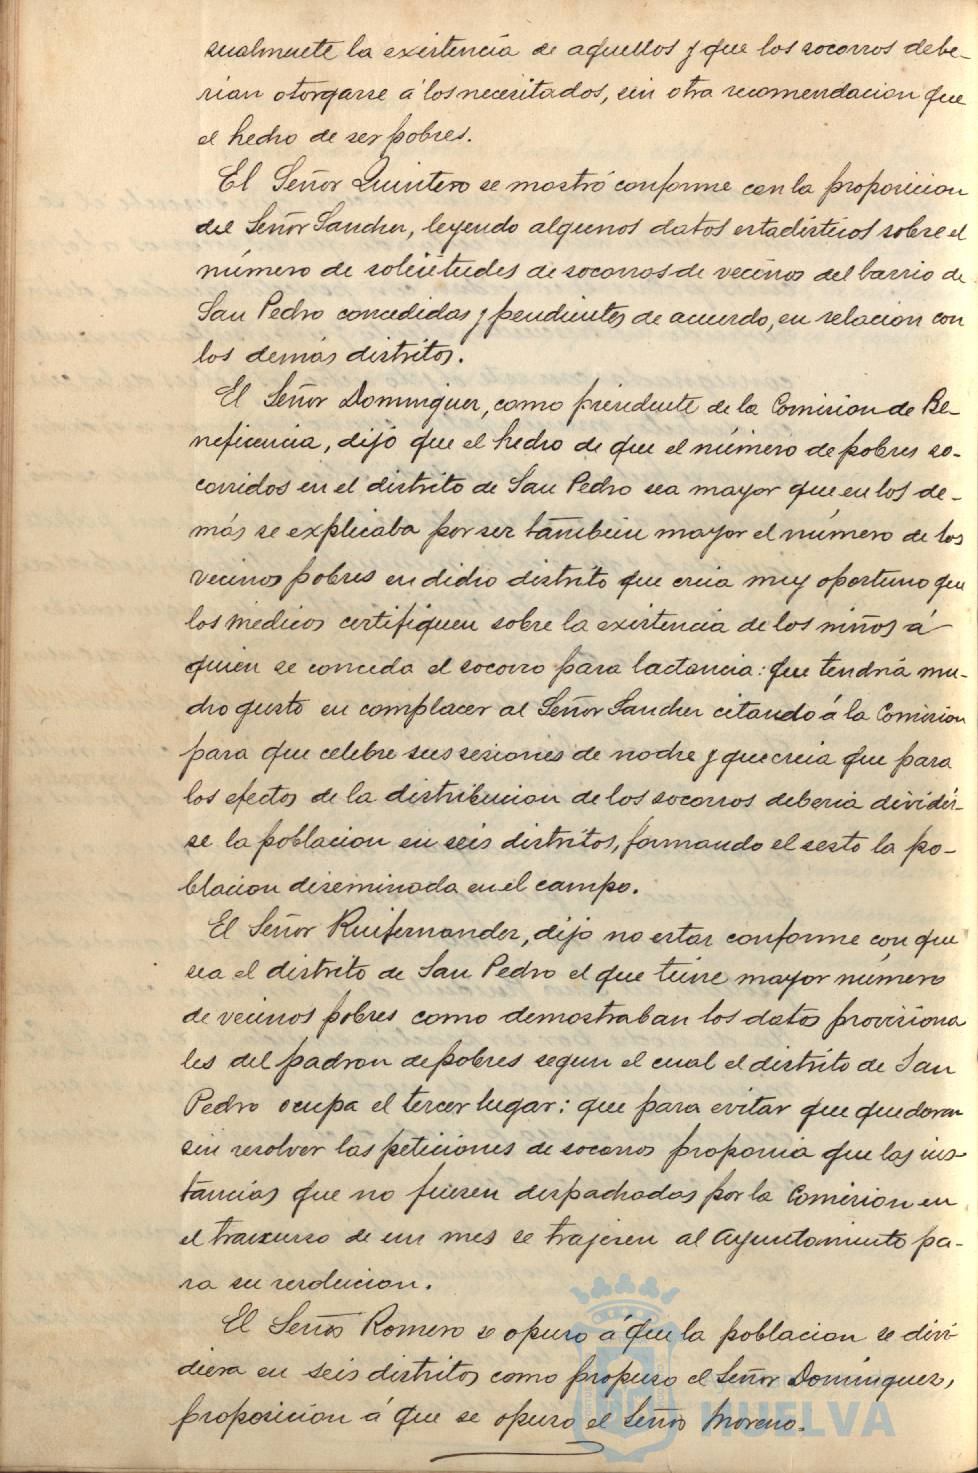 sualmente la existencia de aquellos y que los socorros debe-
rian otorgarse á los necesitados, sin otra recomendacion que
el hecho de ser pobres.
El Señor Quintero se mostró conforme con la proposicion
del Señor Sanchez, leyendo algunos datos estadisticos sobre el
número de solicitudes de socorros de vecinos del barrio de
San Pedro concedidas y pendientes de acuerdo, en relacion con
los demás distritos.
El Señor Dominguez, como presidente de la Comision de Be-
neficencia, dijo que el hecho de que el número de pobres so-
corridos en el distrito de San Pedro sea mayor que en los de-
más se explicaba por ser tambien mayor el número de los
vecinos pobres en dicho distrito que creia muy oportuno que
los medicos certifiquen sobre la existencia de los niños á
quien se conceda el socorro para lactancia: que tendria mu-
cho gusto en complacer al Señor Sanchez citando á la Comision
para que celebre sus sesiones de noche y que creia que para
los efectos de la distribucion de los socorros deberia dividir-
se la poblacion en seis distritos, formando el sesto la po-
blacion diseminada en el campo.
El Señor Ruifernandez, dijo no estar conforme con que
sea el distrito de San Pedro el que tiene mayor número
de vecinos pobres como demostraban los datos provisiona
les del padron de pobres segun el cual el distrito de San
Pedro ocupa el tercer lugar: que para evitar que quedaran
sin resolver las peticiones de socorros proponia que las ins-
tancias que no fuesen despachadas por la Comision en
el trascurso de un mes se trajesen al Ayuntamiento pa-
ra su resolucion.
El Señor Romero se opuso á que la poblacion se divi
diera en seis distritos como propuso el Señor Dominguez,
proposicion á que se opuso el Señor Moreno.
HUELVA